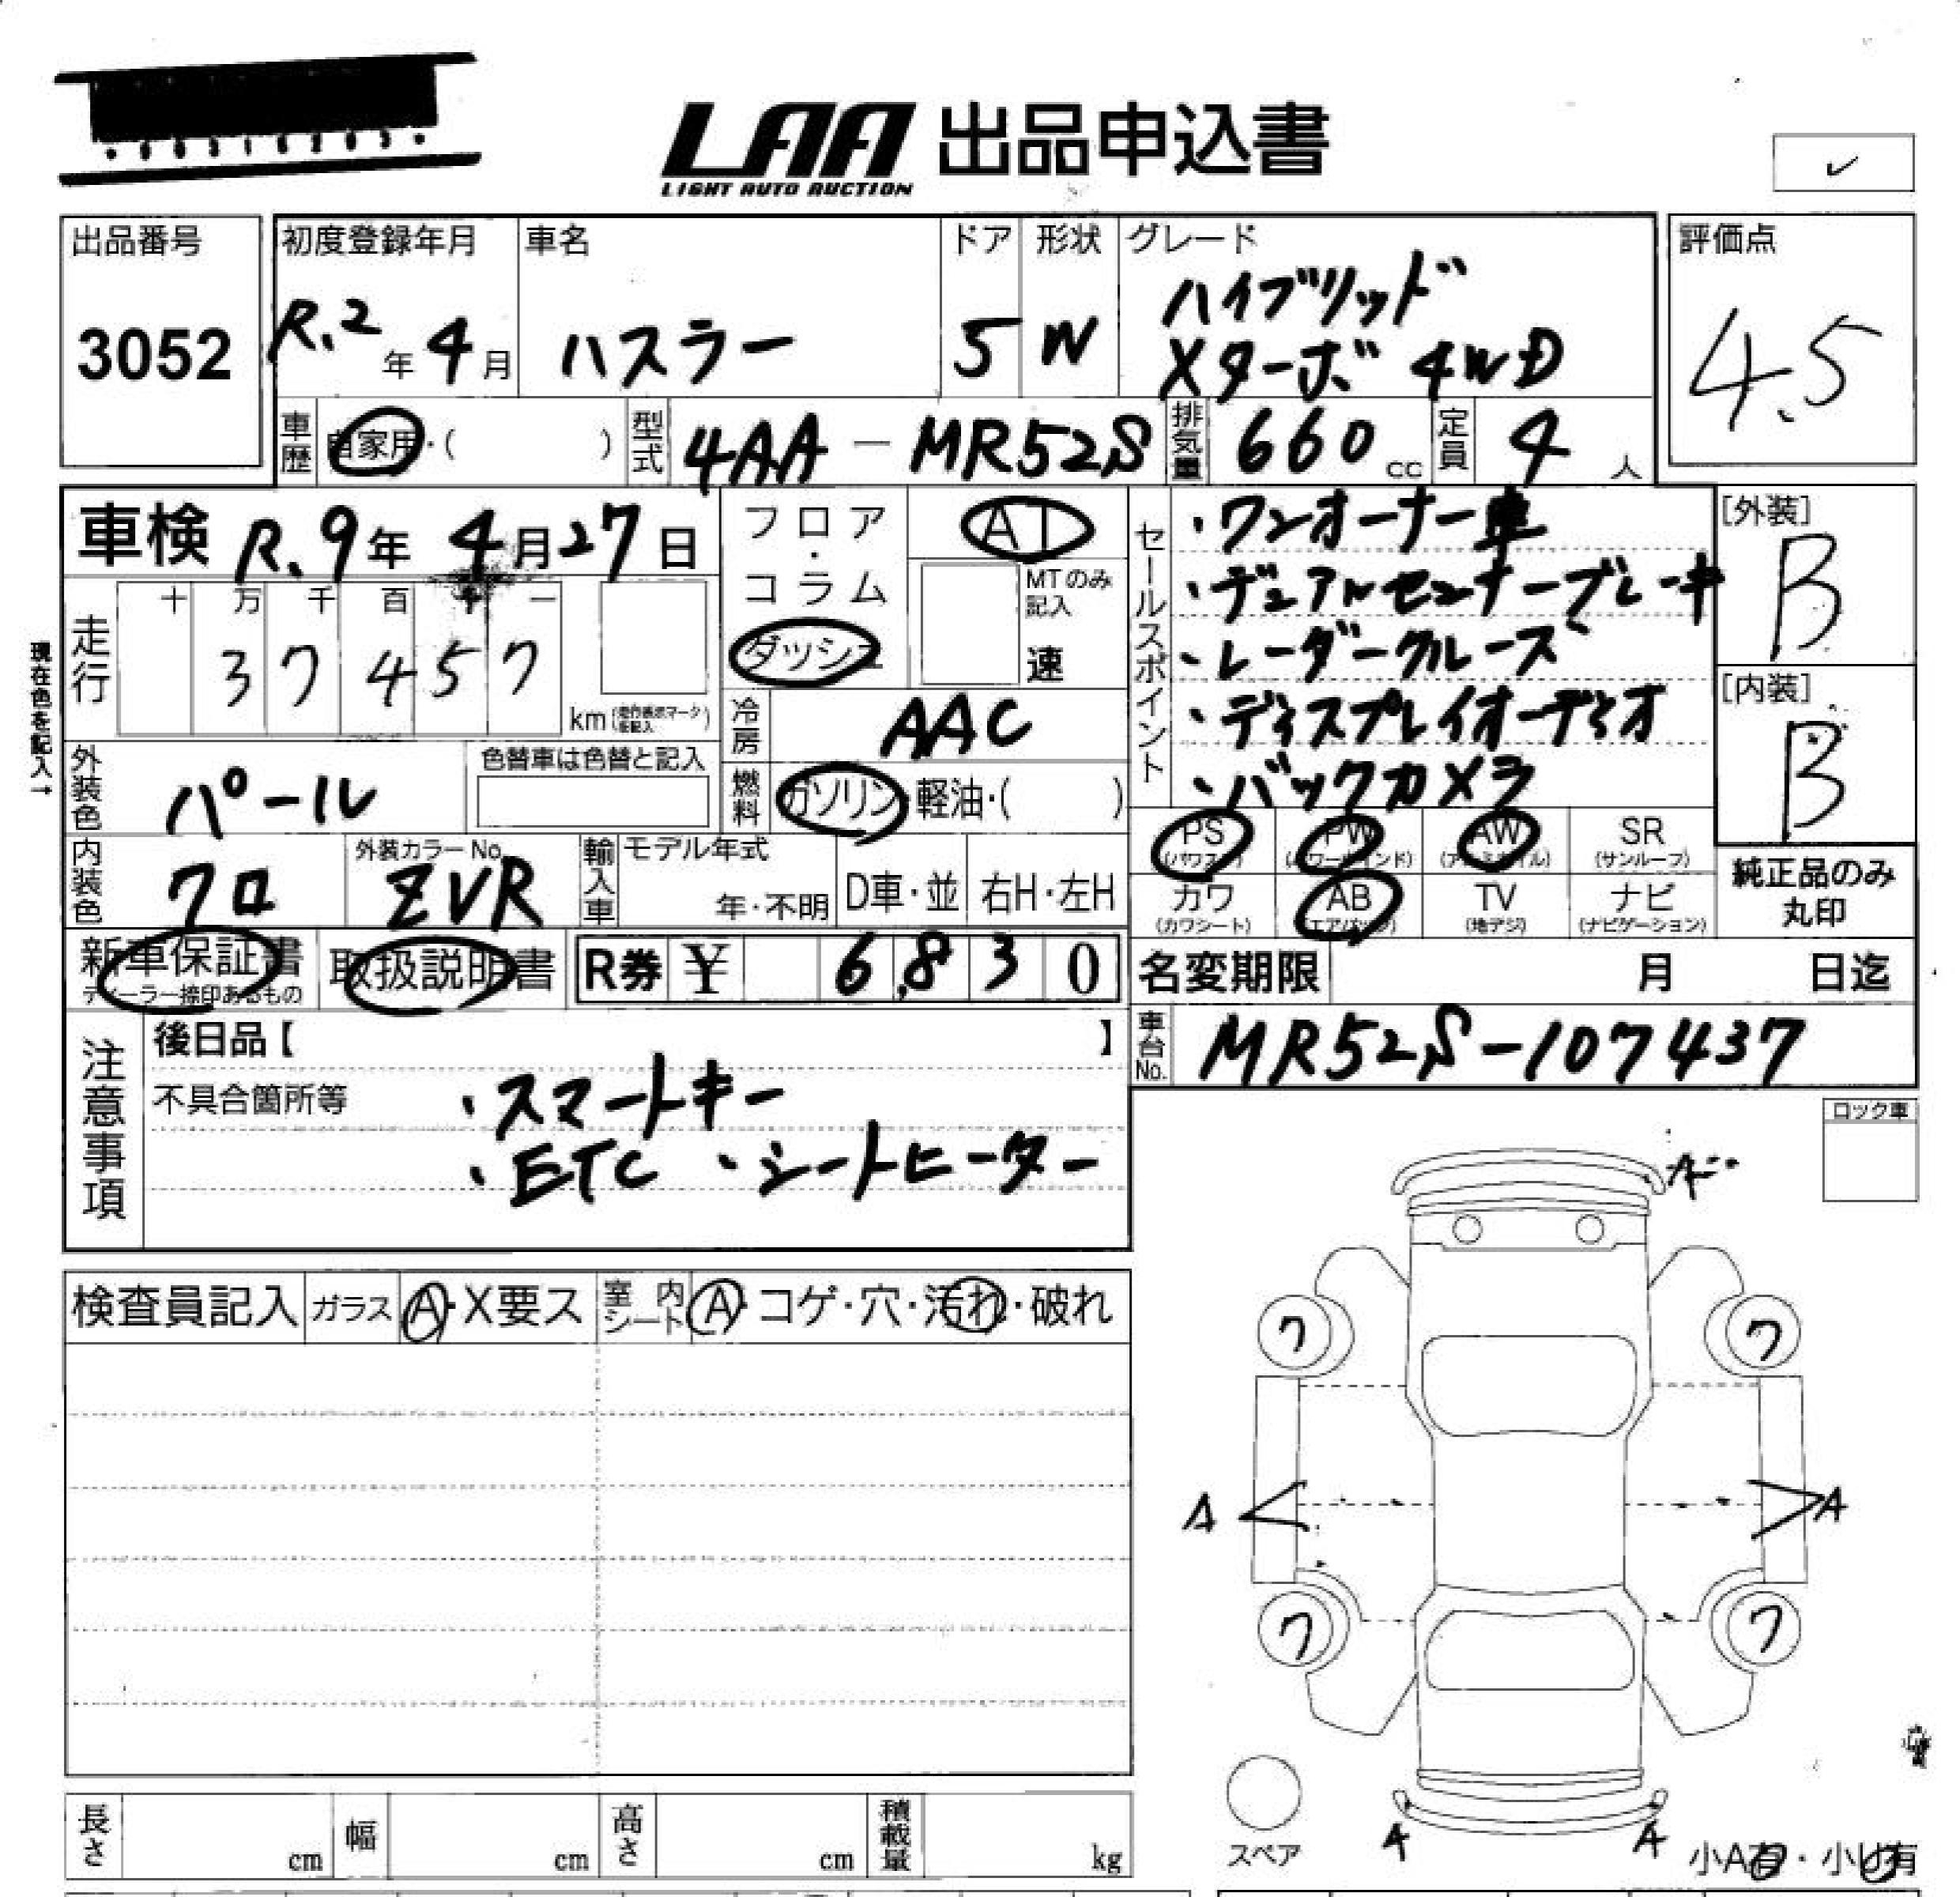 LAA 出品申込書
LIGHT AUTO AUCTION
✓
出品番号
3052
初度登録年月
R.2年 4月
車名
ハスラー
ドア
5
形状
W
グレード
ハイブリッド
Xターボ 4WD
評価点
4.5
車歴 自家用・( )
型式 4AA-MR52S
排気量 660 cc
定員 4 人
車検 R.9年 4月27日
フロア・コラム
ダッシュ
AT
MTのみ
記入
速
セールスポイント
・ワンオーナー車
・デュアルセンサーブレーキ
・レーダークルーズ
・ディスプレイオーディオ
・バックカメラ
[外装]
B
[内装]
B
現在色を記入→
走行
十 万 千 百 十 一
3 7 4 5 7
km
冷房 AAC
燃料 ガソリン・軽油・( )
外装色 パール
色替車は色替と記入
内装色 クロ
外装カラーNo.
ZVR
輸入車
モデル年式
年・不明
D車・並
右H・左H
PS
(パワステ)
PW
(パワーウインド)
AW
(アルミホイル)
SR
(サンルーフ)
カワ
(カワシート)
AB
(エアバッグ)
TV
(地デジ)
ナビ
(ナビゲーション)
純正品のみ
丸印
新車保証書
ディーラー捺印あるもの
取扱説明書
R券 ¥ 6,830
名変期限 月 日迄
車台No. MR52S-107437
注意事項
後日品【 】
不具合箇所等
・スマートキー
・ETC ・シートヒーター
ロック車
検査員記入
ガラス A・X要ス
室内シート A・コゲ・穴・汚れ・破れ
A
ワ ワ
A A
ワ ワ
スペア
A A
小A有・小U有
長さ cm
幅 cm
高さ cm
積載量 kg